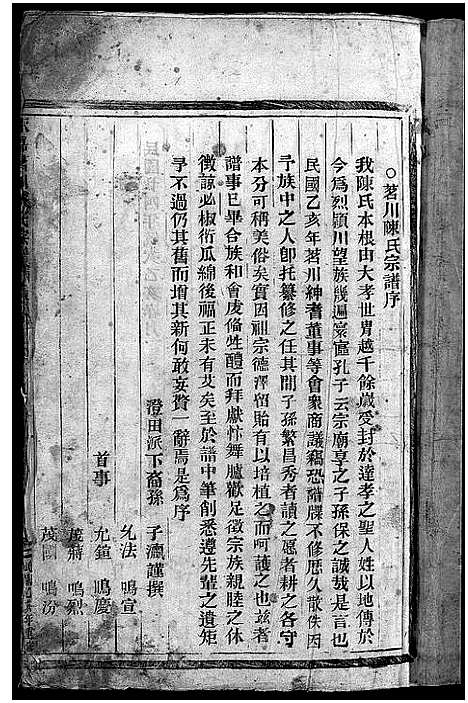 ○茗川陳氏宗譜序
我陳氏本根由大孝世胄越千餘歲受封於達孝之聖人姓以地傳於
今爲烈潁川望族幾遍寰區孔子云宗廟享之子孫保之誠哉是言也
民國乙亥年茗川紳耆董事等會衆商議竊恐譜牒不修歷久散佚因
予族中之人卽托纂修之任其間子孫繁昌秀者讀之愿者耕之各守
本分可稱美俗矣實因祖宗德澤留貽有以培植之而呵護之也玆者
譜事已畢合族和會虔備牲醴而拜獻忭舞臚歡足徵宗族親睦之休
徵諒必椒衍瓜綿後福正未有艾矣至於譜中筆削悉遵先輩之遺矩
予不過仍其舊而增其新何敢妄贅一辭焉是爲序
澄田派下裔孫 子 謹撰
允法 鳴宣
首事 允 鳴慶
茂 鳴烈
茂 鳴汾